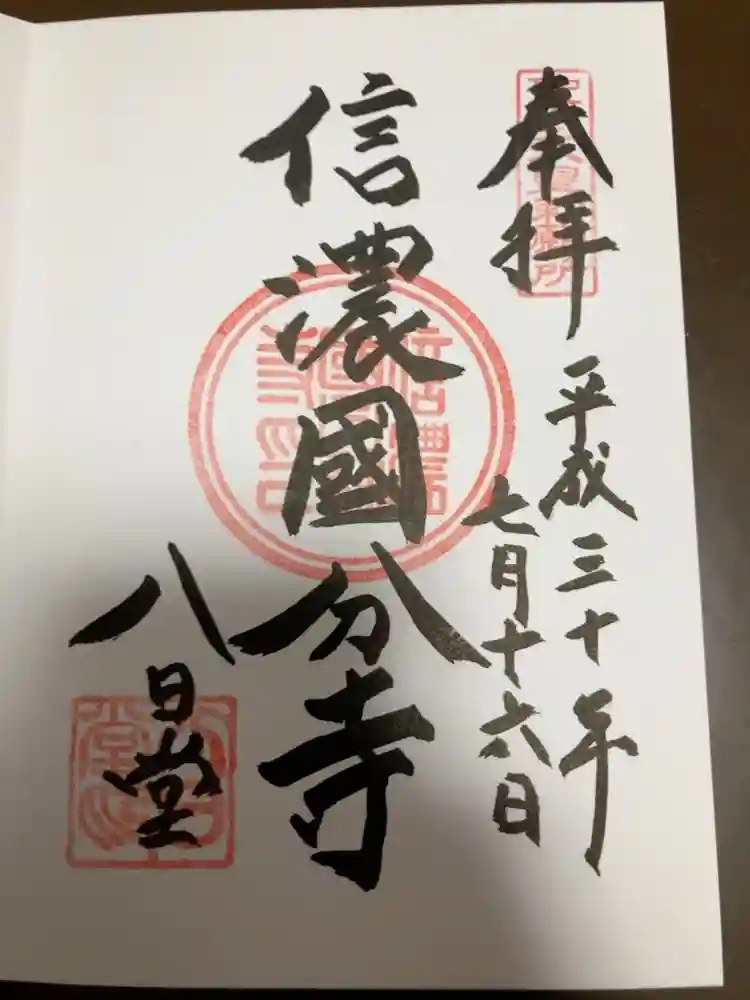 奉拝
平成三十年
七月十六日
信濃國分寺
八日堂